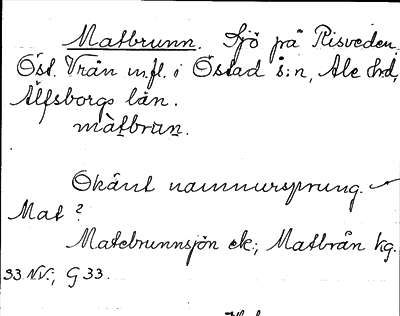 Matbrunn. Sjö på Risveden
Öst. Vrån m.fl. i Östad s:n, Ale hd,
Älfsborgs län.
màtbrun.
Okänt namnursprung.
Mat?
Matebrunnsjön ek.; Matbrån kg.
33 NV.; G 33.